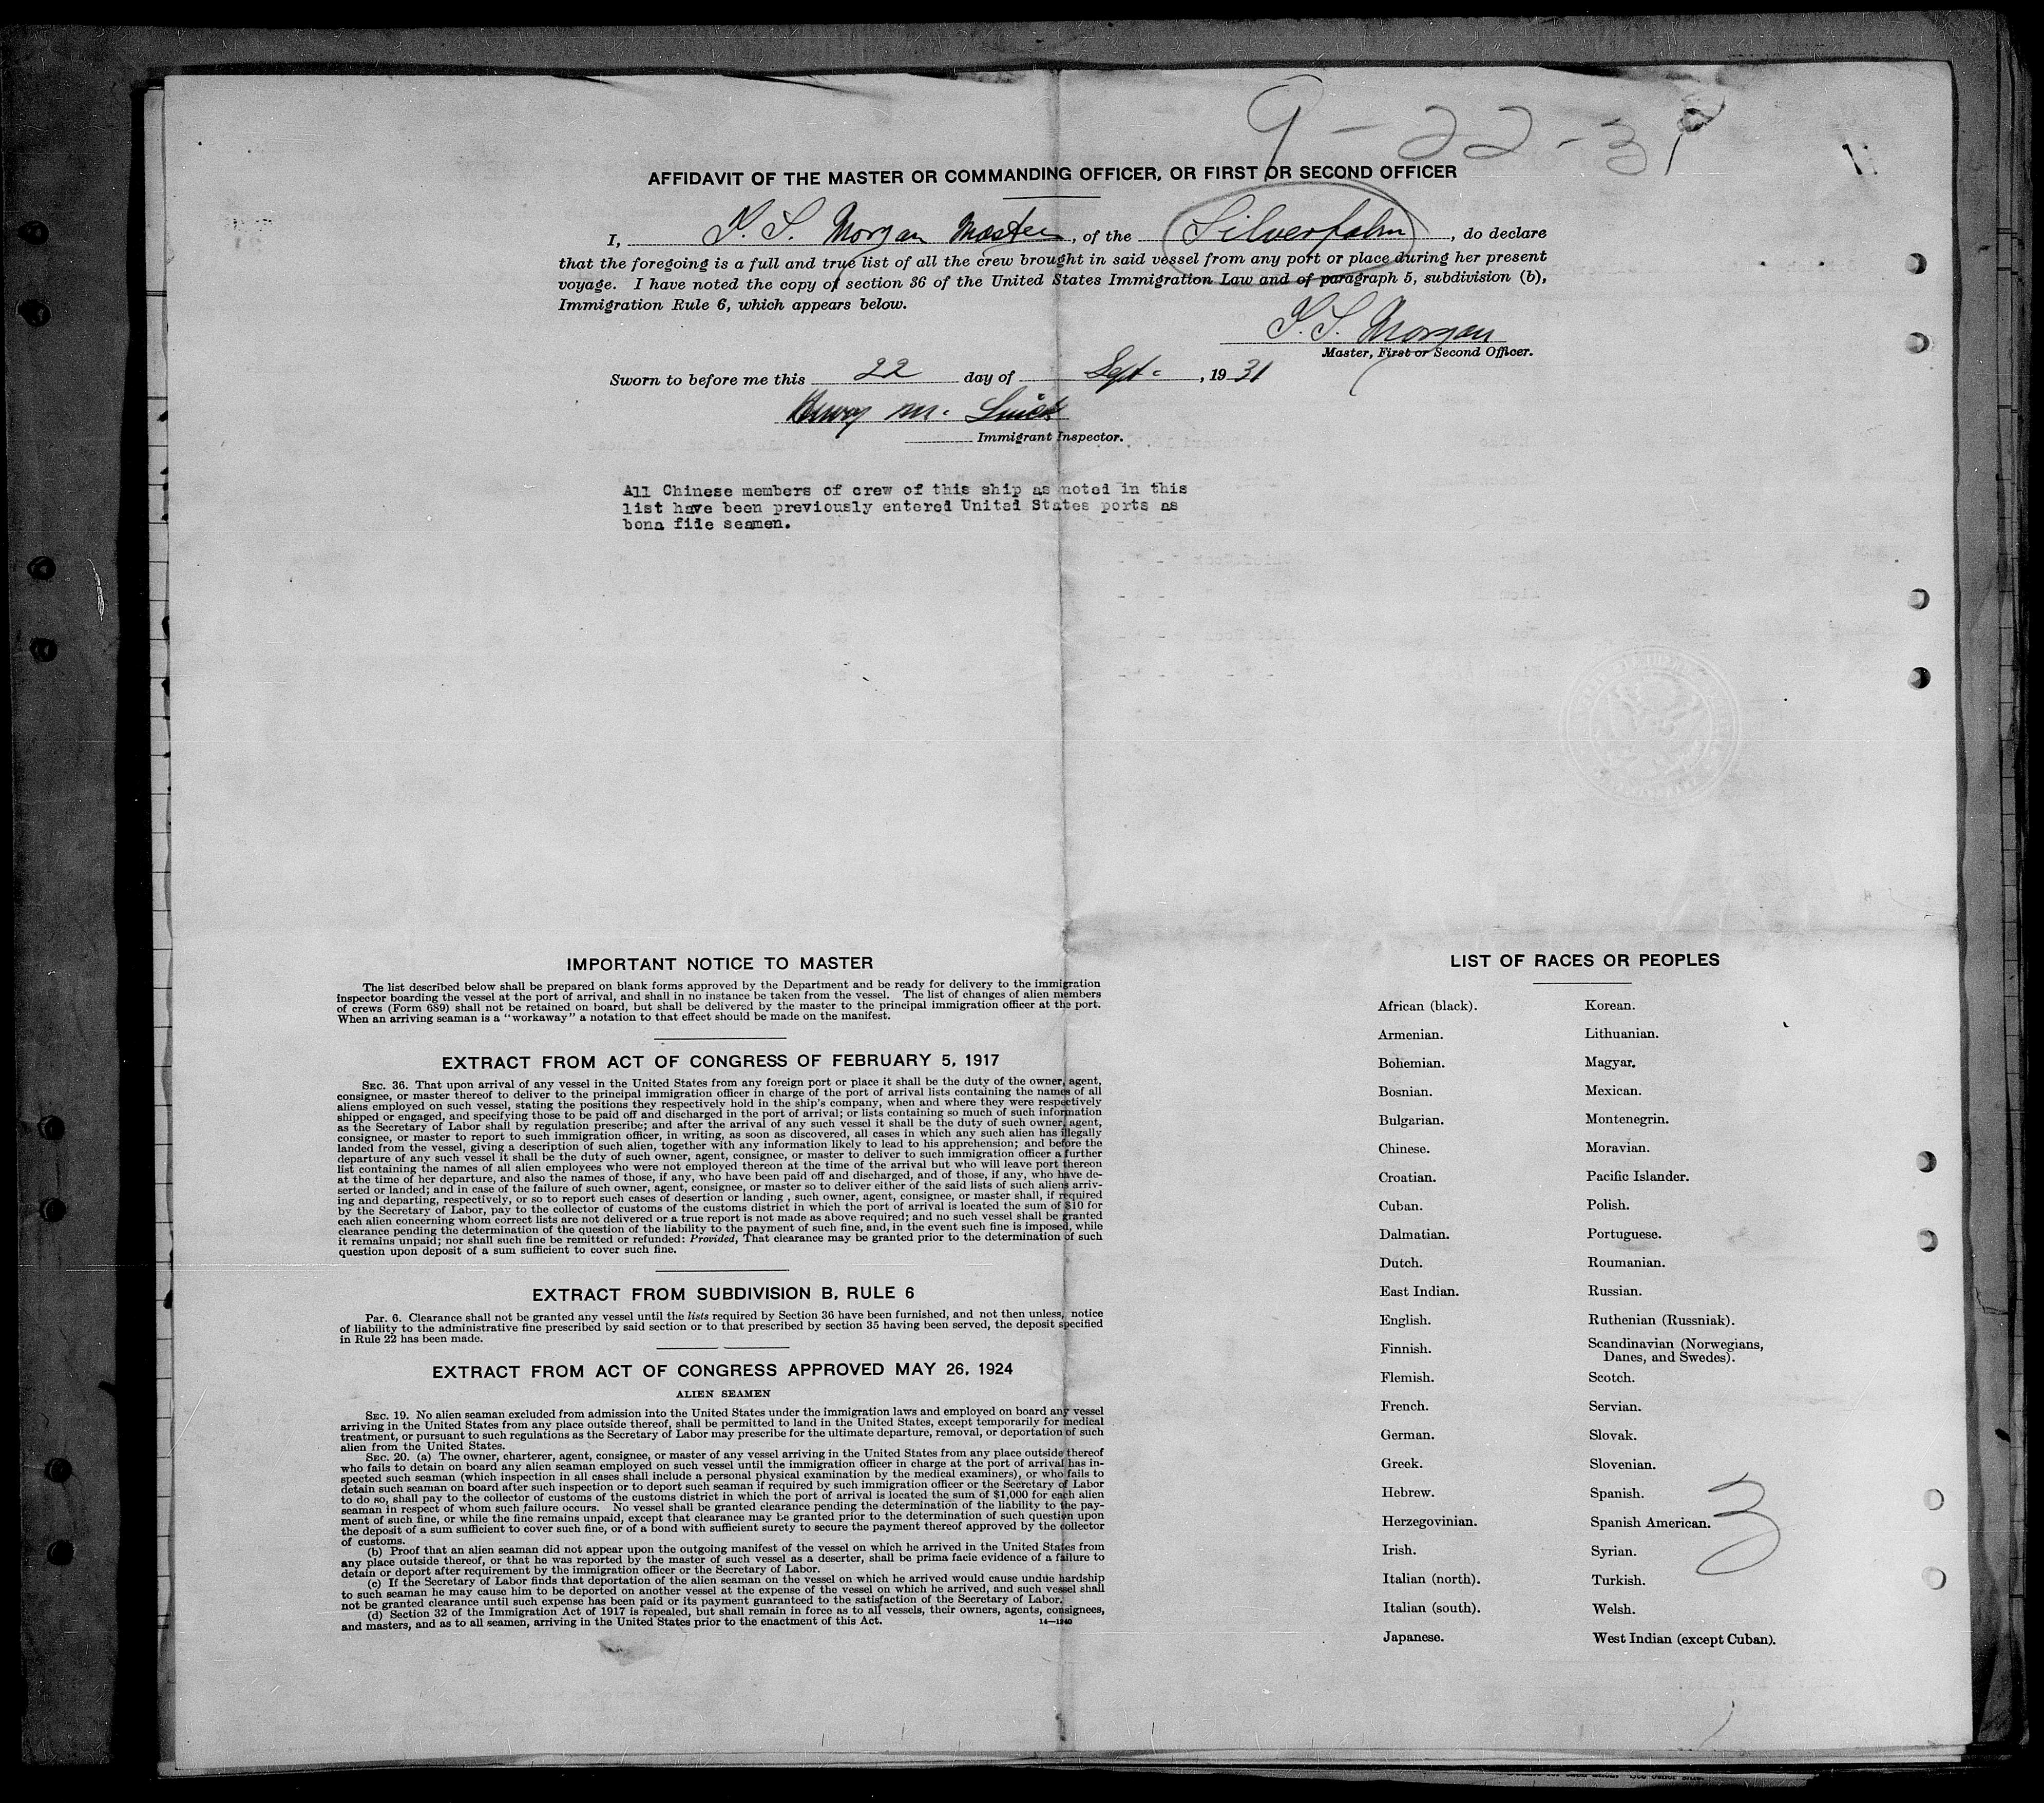 9-22-31
AFFIDAVIT OF THE MASTER OR COMMANDING OFFICER, OR FIRST OR SECOND OFFICER
I, S. Morgan Master, of the Silverpalm, do declare
that the foregoing is a full and true list of all the crew brought in said vessel from any port or place during her present
voyage. I have noted the copy of section 36 of the United States Immigration Law and of paragraph 5, subdivision (b),
Immigration Rule 6, which appears below.
S. Morgan
Master, First or Second Officer.
Sworn to before me this 22 day of Sept., 1931
M.
Immigrant Inspector.
All Chinese members of crew of this ship as noted in this
list have been previously entered United States ports as
bona fide seamen.
IMPORTANT NOTICE TO MASTER
The list described below shall be prepared on blank forms approved by the Department and be ready for delivery to the immigration
inspector boarding the vessel at the port of arrival, and shall in no instance be taken from the vessel. The list of changes of alien members
of crews (Form 689) shall not be retained on board, but shall be delivered by the master to the principal immigration officer at the port.
When an arriving seaman is a "workaway" a notation to that effect should be made on the manifest.
EXTRACT FROM ACT OF CONGRESS OF FEBRUARY 5, 1917
SEC. 36. That upon arrival of any vessel in the United States from any foreign port or place it shall be the duty of the owner, agent,
consignee, or master thereof to deliver to the principal immigration officer in charge of the port of arrival lists containing the names of all
aliens employed on such vessel, stating the positions they respectively hold in the ship's company, when and where they were respectively
shipped or engaged, and specifying those to be paid off and discharged in the port of arrival; or lists containing so much of such information
as the Secretary of Labor shall by regulation prescribe; and after the arrival of any such vessel it shall be the duty of such owner, agent,
consignee, or master to report to such immigration officer, in writing, as soon as discovered, all cases in which any such alien has illegally
landed from the vessel, giving a description of such alien, together with any information likely to lead to his apprehension; and before the
departure of any such vessel it shall be the duty of such owner, agent, consignee, or master to deliver to such immigration officer a further
list containing the names of all alien employees who were not employed thereon at the time of the arrival but who will leave port thereon
at the time of her departure, and also the names of those, if any, who have been paid off and discharged, and of those, if any, who have de-
serted or landed; and in case of the failure of such owner, agent, consignee, or master so to deliver either of the said lists of such aliens arriv-
ing and departing, respectively, or so to report such cases of desertion or landing , such owner, agent, consignee, or master shall, if required
by the Secretary of Labor, pay to the collector of customs of the customs district in which the port of arrival is located the sum of $10 for
each alien concerning whom correct lists are not delivered or a true report is not made as above required; and no such vessel shall be granted
clearance pending the determination of the question of the liability to the payment of such fine, and, in the event such fine is imposed, while
it remains unpaid; nor shall such fine be remitted or refunded: Provided, That clearance may be granted prior to the determination of such
question upon deposit of a sum sufficient to cover such fine.
EXTRACT FROM SUBDIVISION B, RULE 6
Par. 6. Clearance shall not be granted any vessel until the lists required by Section 36 have been furnished, and not then unless, notice
of liability to the administrative fine prescribed by said section or to that prescribed by section 35 having been served, the deposit specified
in Rule 22 has been made.
EXTRACT FROM ACT OF CONGRESS APPROVED MAY 26, 1924
ALIEN SEAMEN
SEC. 19. No alien seaman excluded from admission into the United States under the immigration laws and employed on board any vessel
arriving in the United States from any place outside thereof, shall be permitted to land in the United States, except temporarily for medical
treatment, or pursuant to such regulations as the Secretary of Labor may prescribe for the ultimate departure, removal, or deportation of such
alien from the United States.
SEC. 20. (a) The owner, charterer, agent, consignee, or master of any vessel arriving in the United States from any place outside thereof
who fails to detain on board any alien seaman employed on such vessel until the immigration officer in charge at the port of arrival has in-
spected such seaman (which inspection in all cases shall include a personal physical examination by the medical examiners), or who fails to
detain such seaman on board after such inspection or to deport such seaman if required by such immigration officer or the Secretary of Labor
to do so, shall pay to the collector of customs of the customs district in which the port of arrival is located the sum of $1,000 for each alien
seaman in respect of whom such failure occurs. No vessel shall be granted clearance pending the determination of the liability to the pay-
ment of such fine, or while the fine remains unpaid, except that clearance may be granted prior to the determination of such question upon
the deposit of a sum sufficient to cover such fine, or of a bond with sufficient surety to secure the payment thereof approved by the collector
of customs.
(b) Proof that an alien seaman did not appear upon the outgoing manifest of the vessel on which he arrived in the United States from
any place outside thereof, or that he was reported by the master of such vessel as a deserter, shall be prima facie evidence of a failure to
detain or deport after requirement by the immigration officer or the Secretary of Labor.
(c) If the Secretary of Labor finds that deportation of the alien seaman on the vessel on which he arrived would cause undue hardship
to such seaman he may cause him to be deported on another vessel at the expense of the vessel on which he arrived, and such vessel shall
not be granted clearance until such expense has been paid or its payment guaranteed to the satisfaction of the Secretary of Labor.
(d) Section 32 of the Immigration Act of 1917 is repealed, but shall remain in force as to all vessels, their owners, agents, consignees,
and masters, and as to all seamen, arriving in the United States prior to the enactment of this Act.
14—1240
LIST OF RACES OR PEOPLES
African (black).
Armenian.
Bohemian.
Bosnian.
Bulgarian.
Chinese.
Croatian.
Cuban.
Dalmatian.
Dutch.
East Indian.
English.
Finnish.
Flemish.
French.
German.
Greek.
Hebrew.
Herzegovinian.
Irish.
Italian (north).
Italian (south).
Japanese.
Korean.
Lithuanian.
Magyar.
Mexican.
Montenegrin.
Moravian.
Pacific Islander.
Polish.
Portuguese.
Roumanian.
Russian.
Ruthenian (Russniak).
Scandinavian (Norwegians,
Danes, and Swedes).
Scotch.
Servian.
Slovak.
Slovenian.
Spanish.
Spanish American.
Syrian.
Turkish.
Welsh.
West Indian (except Cuban).
3